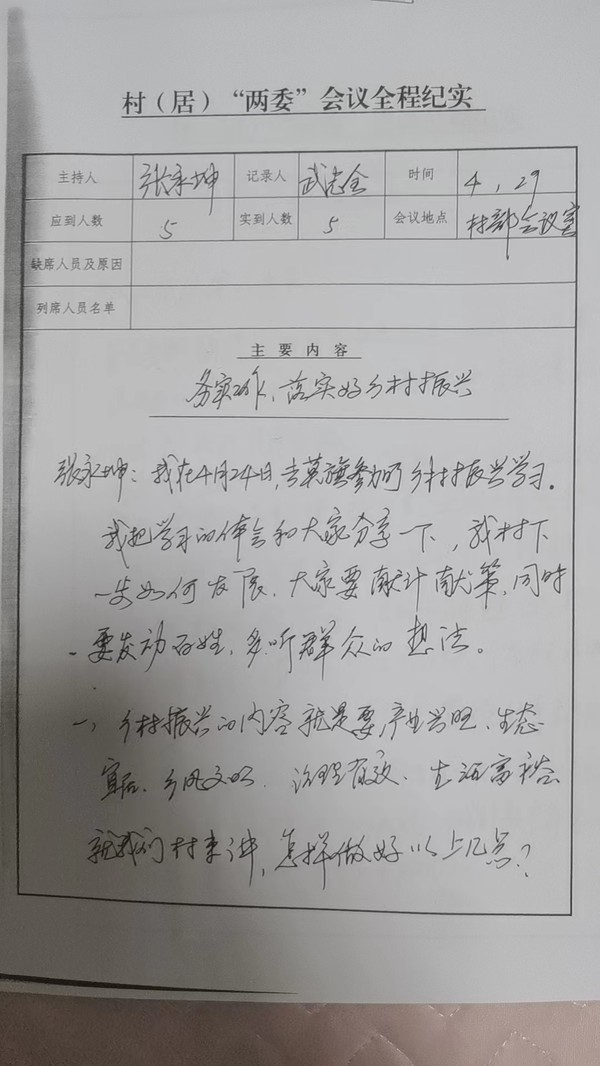 村（居）“两委”会议全程纪实
主持人 张永坤 记录人 武志全 时间 4.29
应到人数 5 实到人数 5 会议地点 村部会议室
缺席人员及原因
列席人员名单
主要内容
务实工作，落实好乡村振兴
张永坤：我在4月24日，去莫旗参加的乡村振兴学习。
我把学习的体会和大家分享一下，我村下
一步如何发展，大家要献计献策，同时
要发动百姓，多听群众的想法。
一、乡村振兴的内容就是要产业兴旺、生态
宜居、乡风文明、治理有效、生活富裕。
就我们村来讲，怎样做好以上几点？